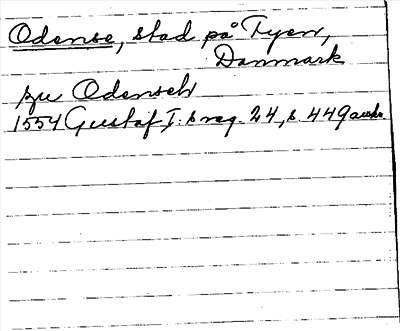 Odense, stad på Fyen,
Danmark
zu Odensch
1554 Gustaf I:s reg. 24, s. 449